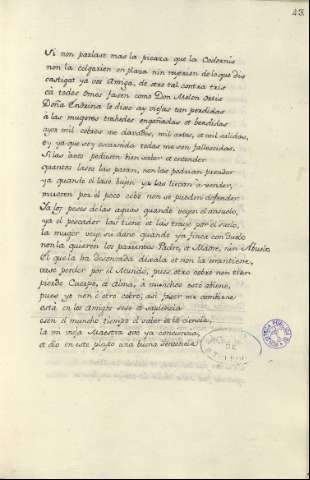 43
Si non parlase mas la picaza que la Codorniz
non la colgarien en plaza nin reyrien de lo que dis
castigat ya vos Amiga, de otro tal contra tris
ca todos omes fasen como Don Melon Ortis
Doña Endrina le dixo ay viejas tan perdidas
á las mugeres trahedes engañadas et bendidas
ayer mil cobros me davades, mil artes, et mil salidas,
oy ya que soy escarnida todas me son fallescidas.
Si las aves podiesen bien saber et entender
quantos lasos les paran, non las podrian prender
ya quando el laso byen ya las lievan á vender,
mueren por el poco cebo non se pueden defender.
Ya los peces de las aguas quando veyen el ansuelo,
ya el pescador los tiene et los traye por el suelo,
la muger veye su daño quando ya finca con duelo
non la quieren los parientes Padre, et Madre, nin Abuelo
El que la ha desonrrada dexala et non la mantiene,
vase perder por el Mundo, pues otro cobro non tiene
pierde Cuerpo, et Alma, á muchos esto abiene,
pues yo non é otro cobro, asi faser me conbiene
está en los Antigos seso et sapiencia
es en el mucho tiempo el saber et la ciencia,
la mi vieja Maestra ovo ya conciencia,
et dio en este pleyto una buena sentencia